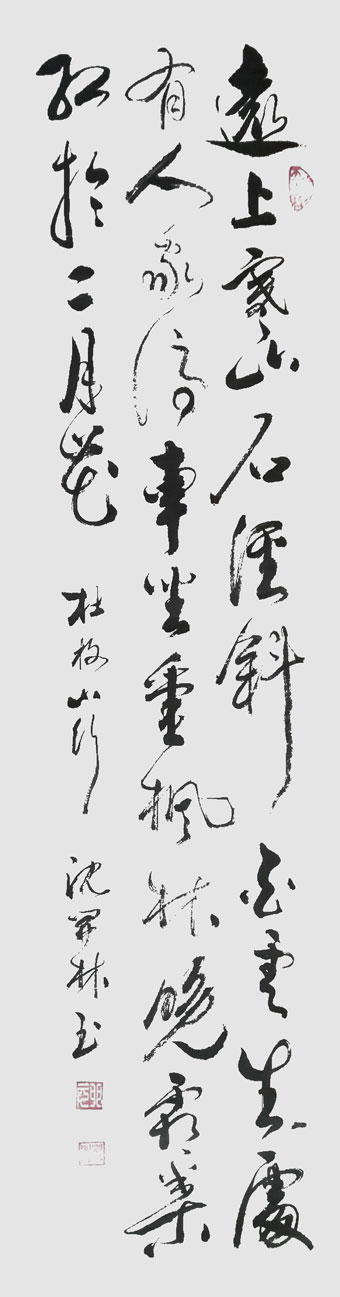 遠上寒山石徑斜白雲生處
有人家停車坐愛楓林晚霜葉
紅於二月花 杜牧山行 沈林